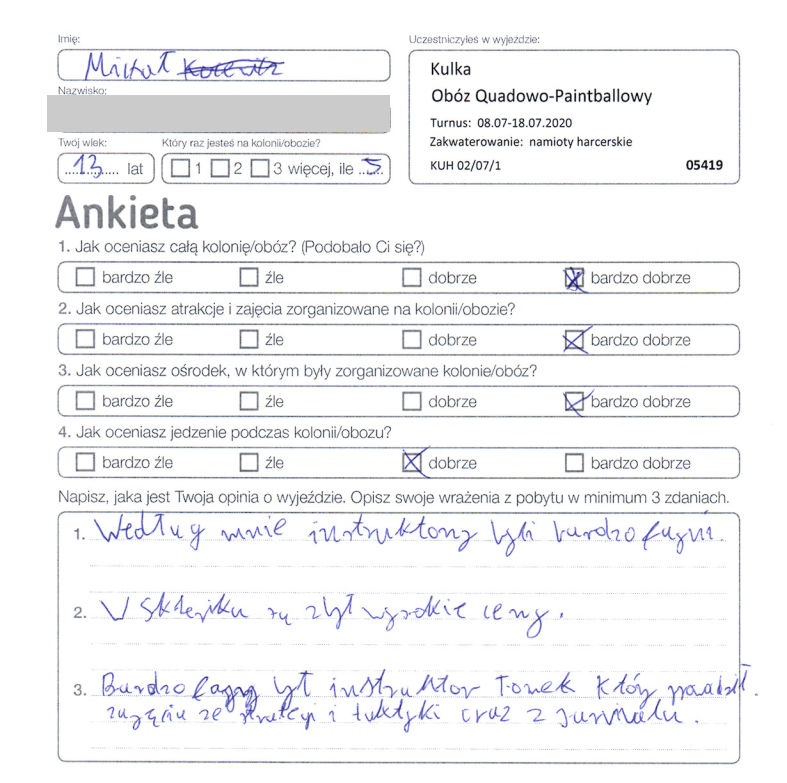 Imię:
Uczestniczyłeś w wyjeździe:
Michał
Kulka
Nazwisko:
Obóz Quadowo-Paintballowy
Turnus: 08.07-18.07.2020
Twój wiek:
Który raz jesteś na kolonii/obozie?
Zakwaterowanie: namioty harcerskie
13 lat
1 2 3 więcej, ile 5
KUH 02/07/1
05419
Ankieta
1. Jak oceniasz całą kolonię/obóz? (Podobało Ci się?)
bardzo źle źle dobrze bardzo dobrze
2. Jak oceniasz atrakcje i zajęcia zorganizowane na kolonii/obozie?
bardzo źle źle dobrze bardzo dobrze
3. Jak oceniasz ośrodek, w którym były zorganizowane kolonie/obóz?
bardzo źle źle dobrze bardzo dobrze
4. Jak oceniasz jedzenie podczas kolonii/obozu?
bardzo źle źle dobrze bardzo dobrze
Napisz, jaka jest Twoja opinia o wyjeździe. Opisz swoje wrażenia z pobytu w minimum 3 zdaniach.
1. Według mnie instruktorzy byli bardzo fajni.
2. W sklepiku są zbyt wysokie ceny.
3. Bardzo fajny był instruktor Tomek który prowadził
zajęcia ze strategi i taktyki oraz z surwiwalu.